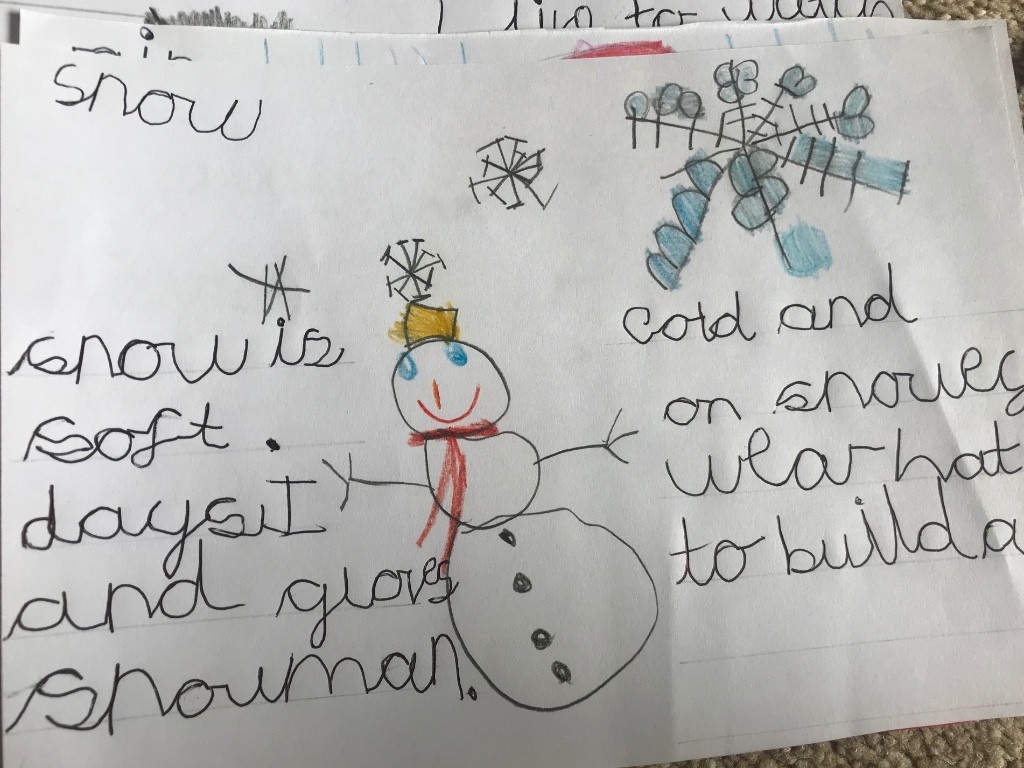 snow
snow is cold and
soft. on snowey
days I wear hat
and gloves to build a
snowman.